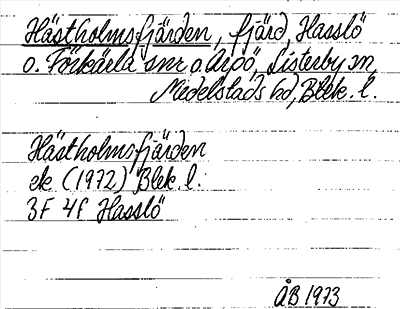 Hästholmsfjärden, fjärd, Hasslö
o. Förkärla snr o. Arpö, Listerby sn,
Medelstads hd, Blek. l.
Hästholmsfjärden
ek (1972) Blek. l.
3F 4f Hasslö
ÅB 1973